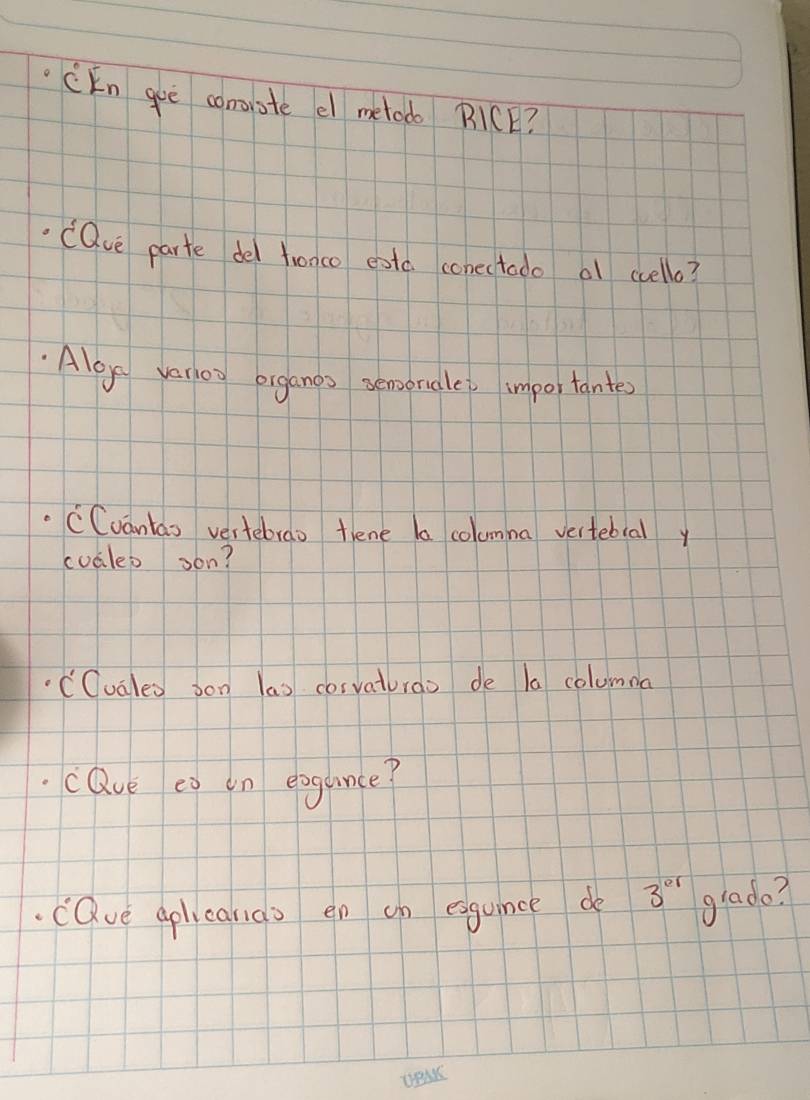 • ¿En qué consiste el metodo RICE?
• ¿Qué parte del tronco esta conectado al cuello?
• Aloja varios organos sensoriales importantes
• ¿Cuántas vertebras tiene la columna vertebral y
cuáles son?
• ¿Cuáles son las corvaturas de la columna
• ¿Qué es un esguince?
• ¿Qué aplicarias en un esguince de 3er grado?